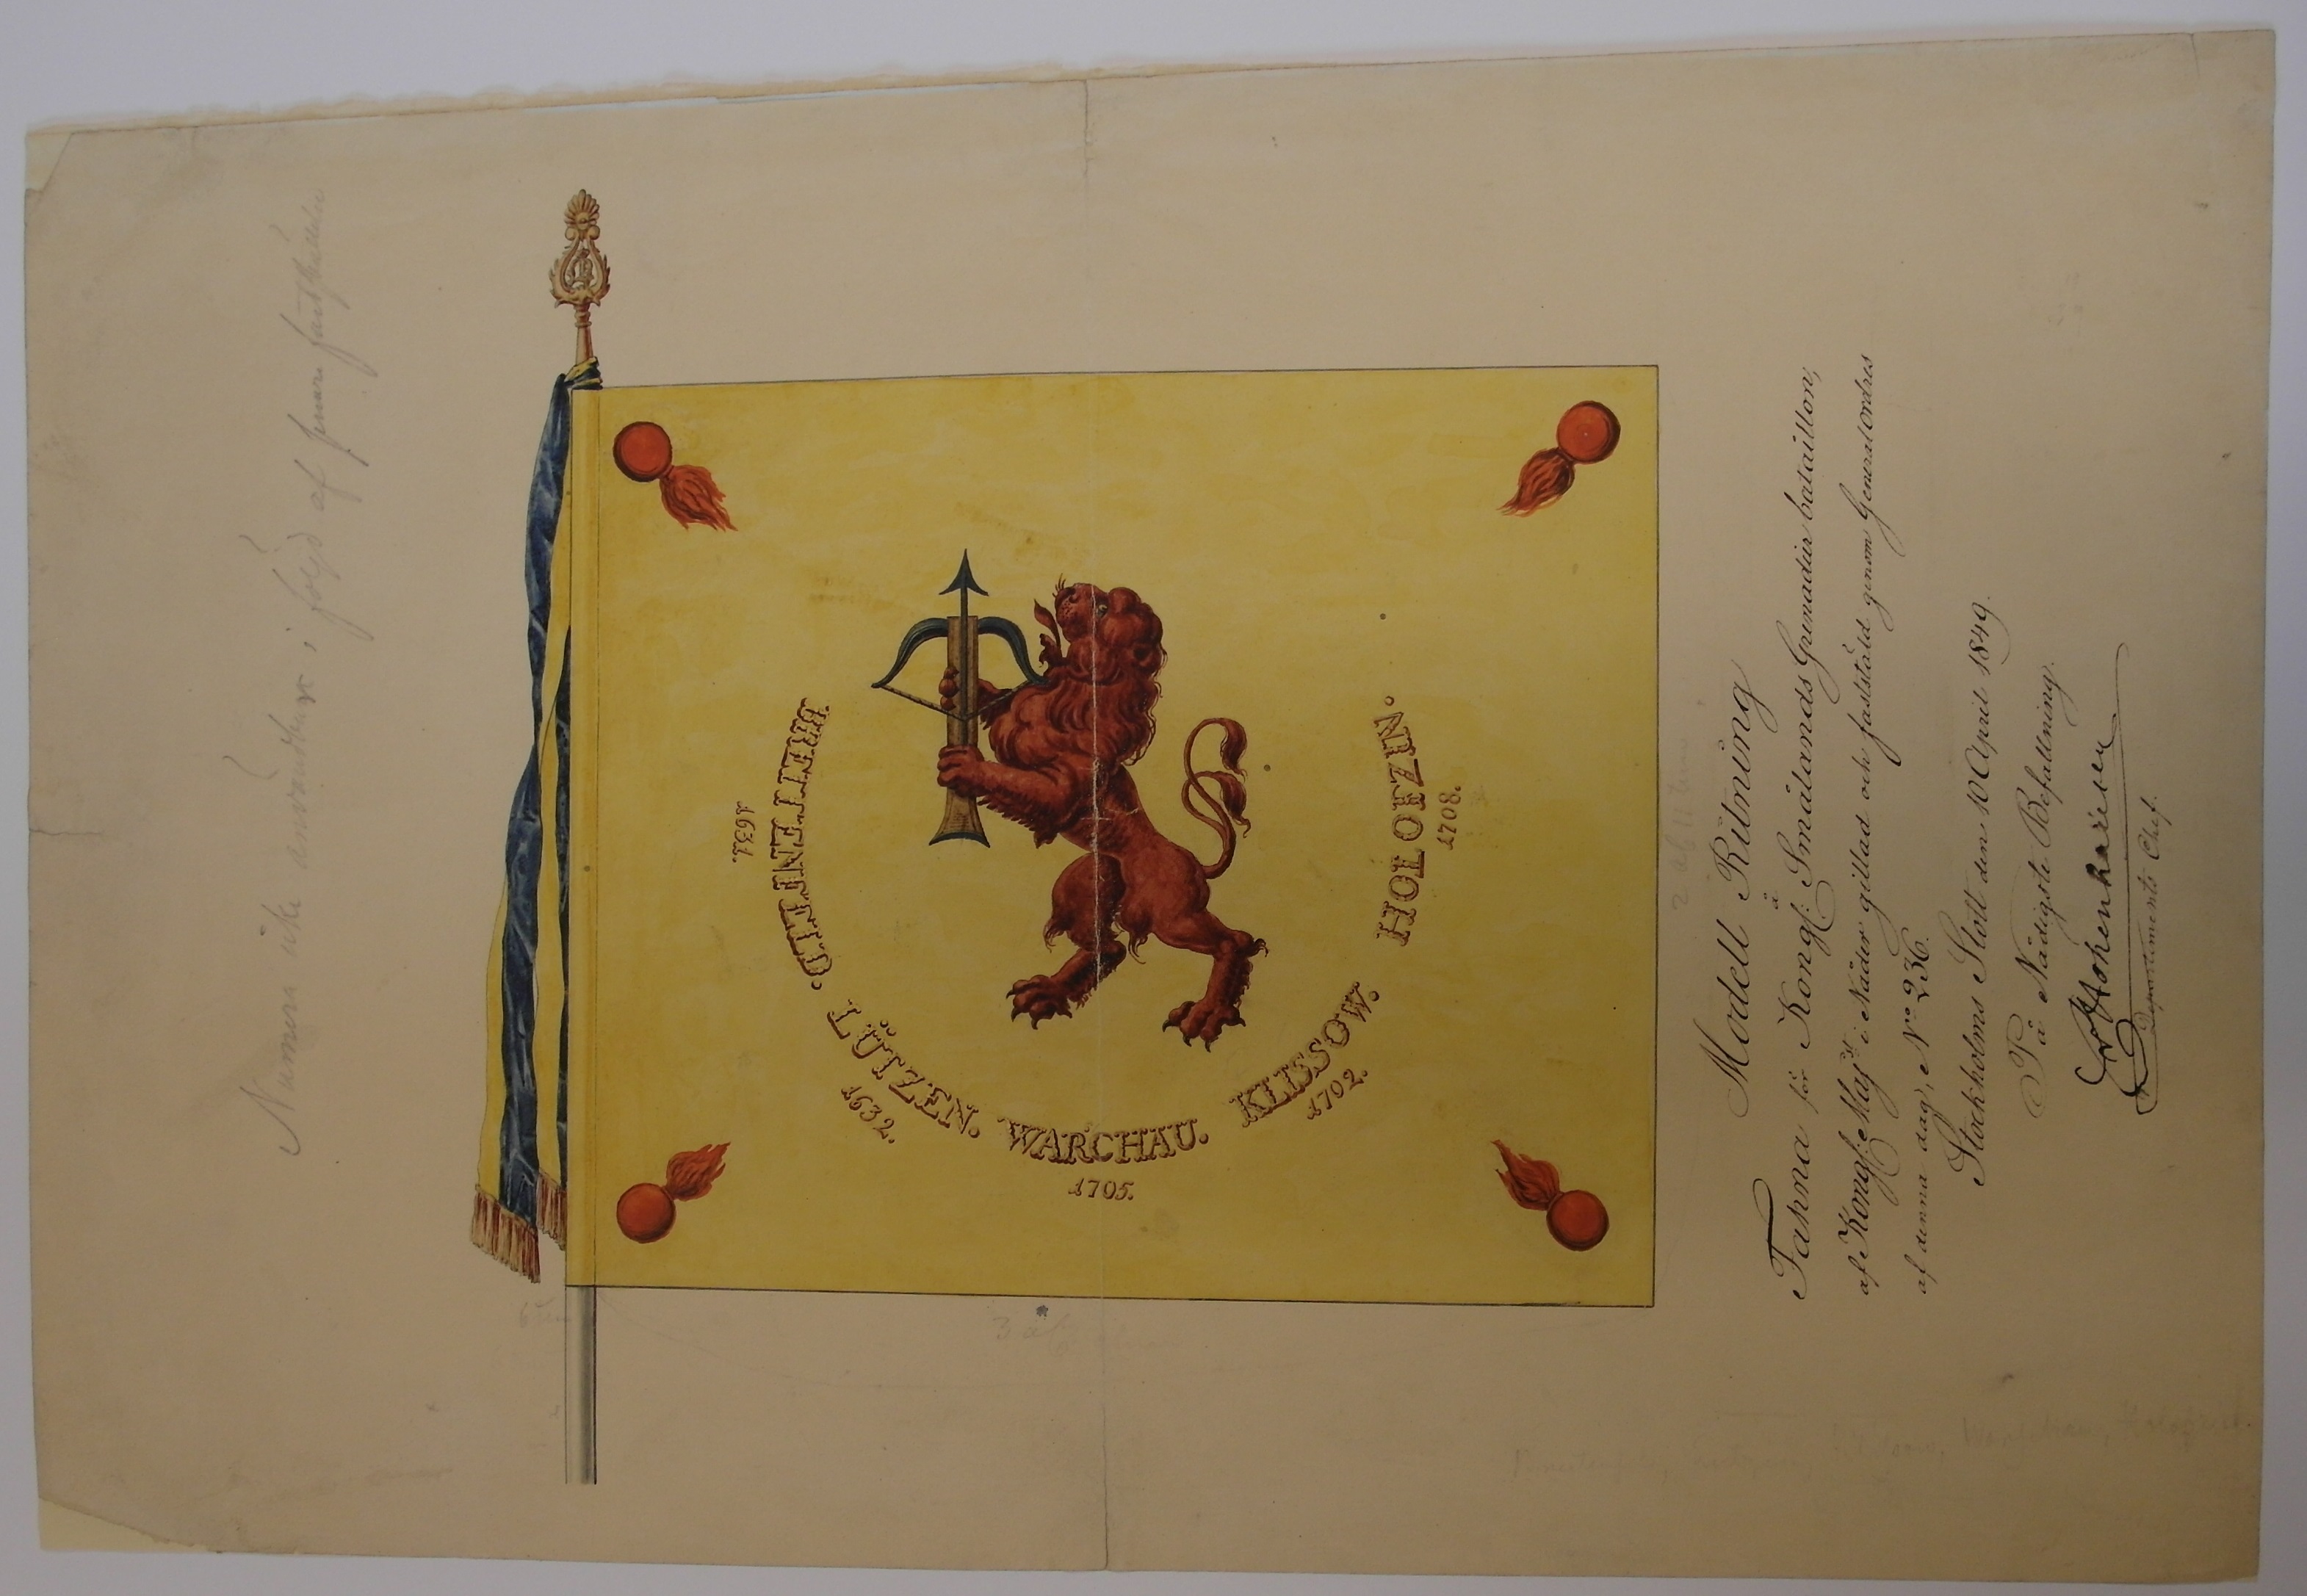 Numera icke användbar i följd af
BREITENFELD.
1631.
LÜTZEN.
1632.
WARCHAU.
1705.
KLISSOW.
1702.
HOLOFZIN.
1708.
Modell Ritning
å
Fahna för Kongl: Smålands Grenadier bataillon,
af Kongl: Majst i Nåder gillad och fastställd genom Generalordres
af denna dag, No 236.
Stockholms Slott den 10 April 1849.
På Nådigste Befallning.
Departements Chef.